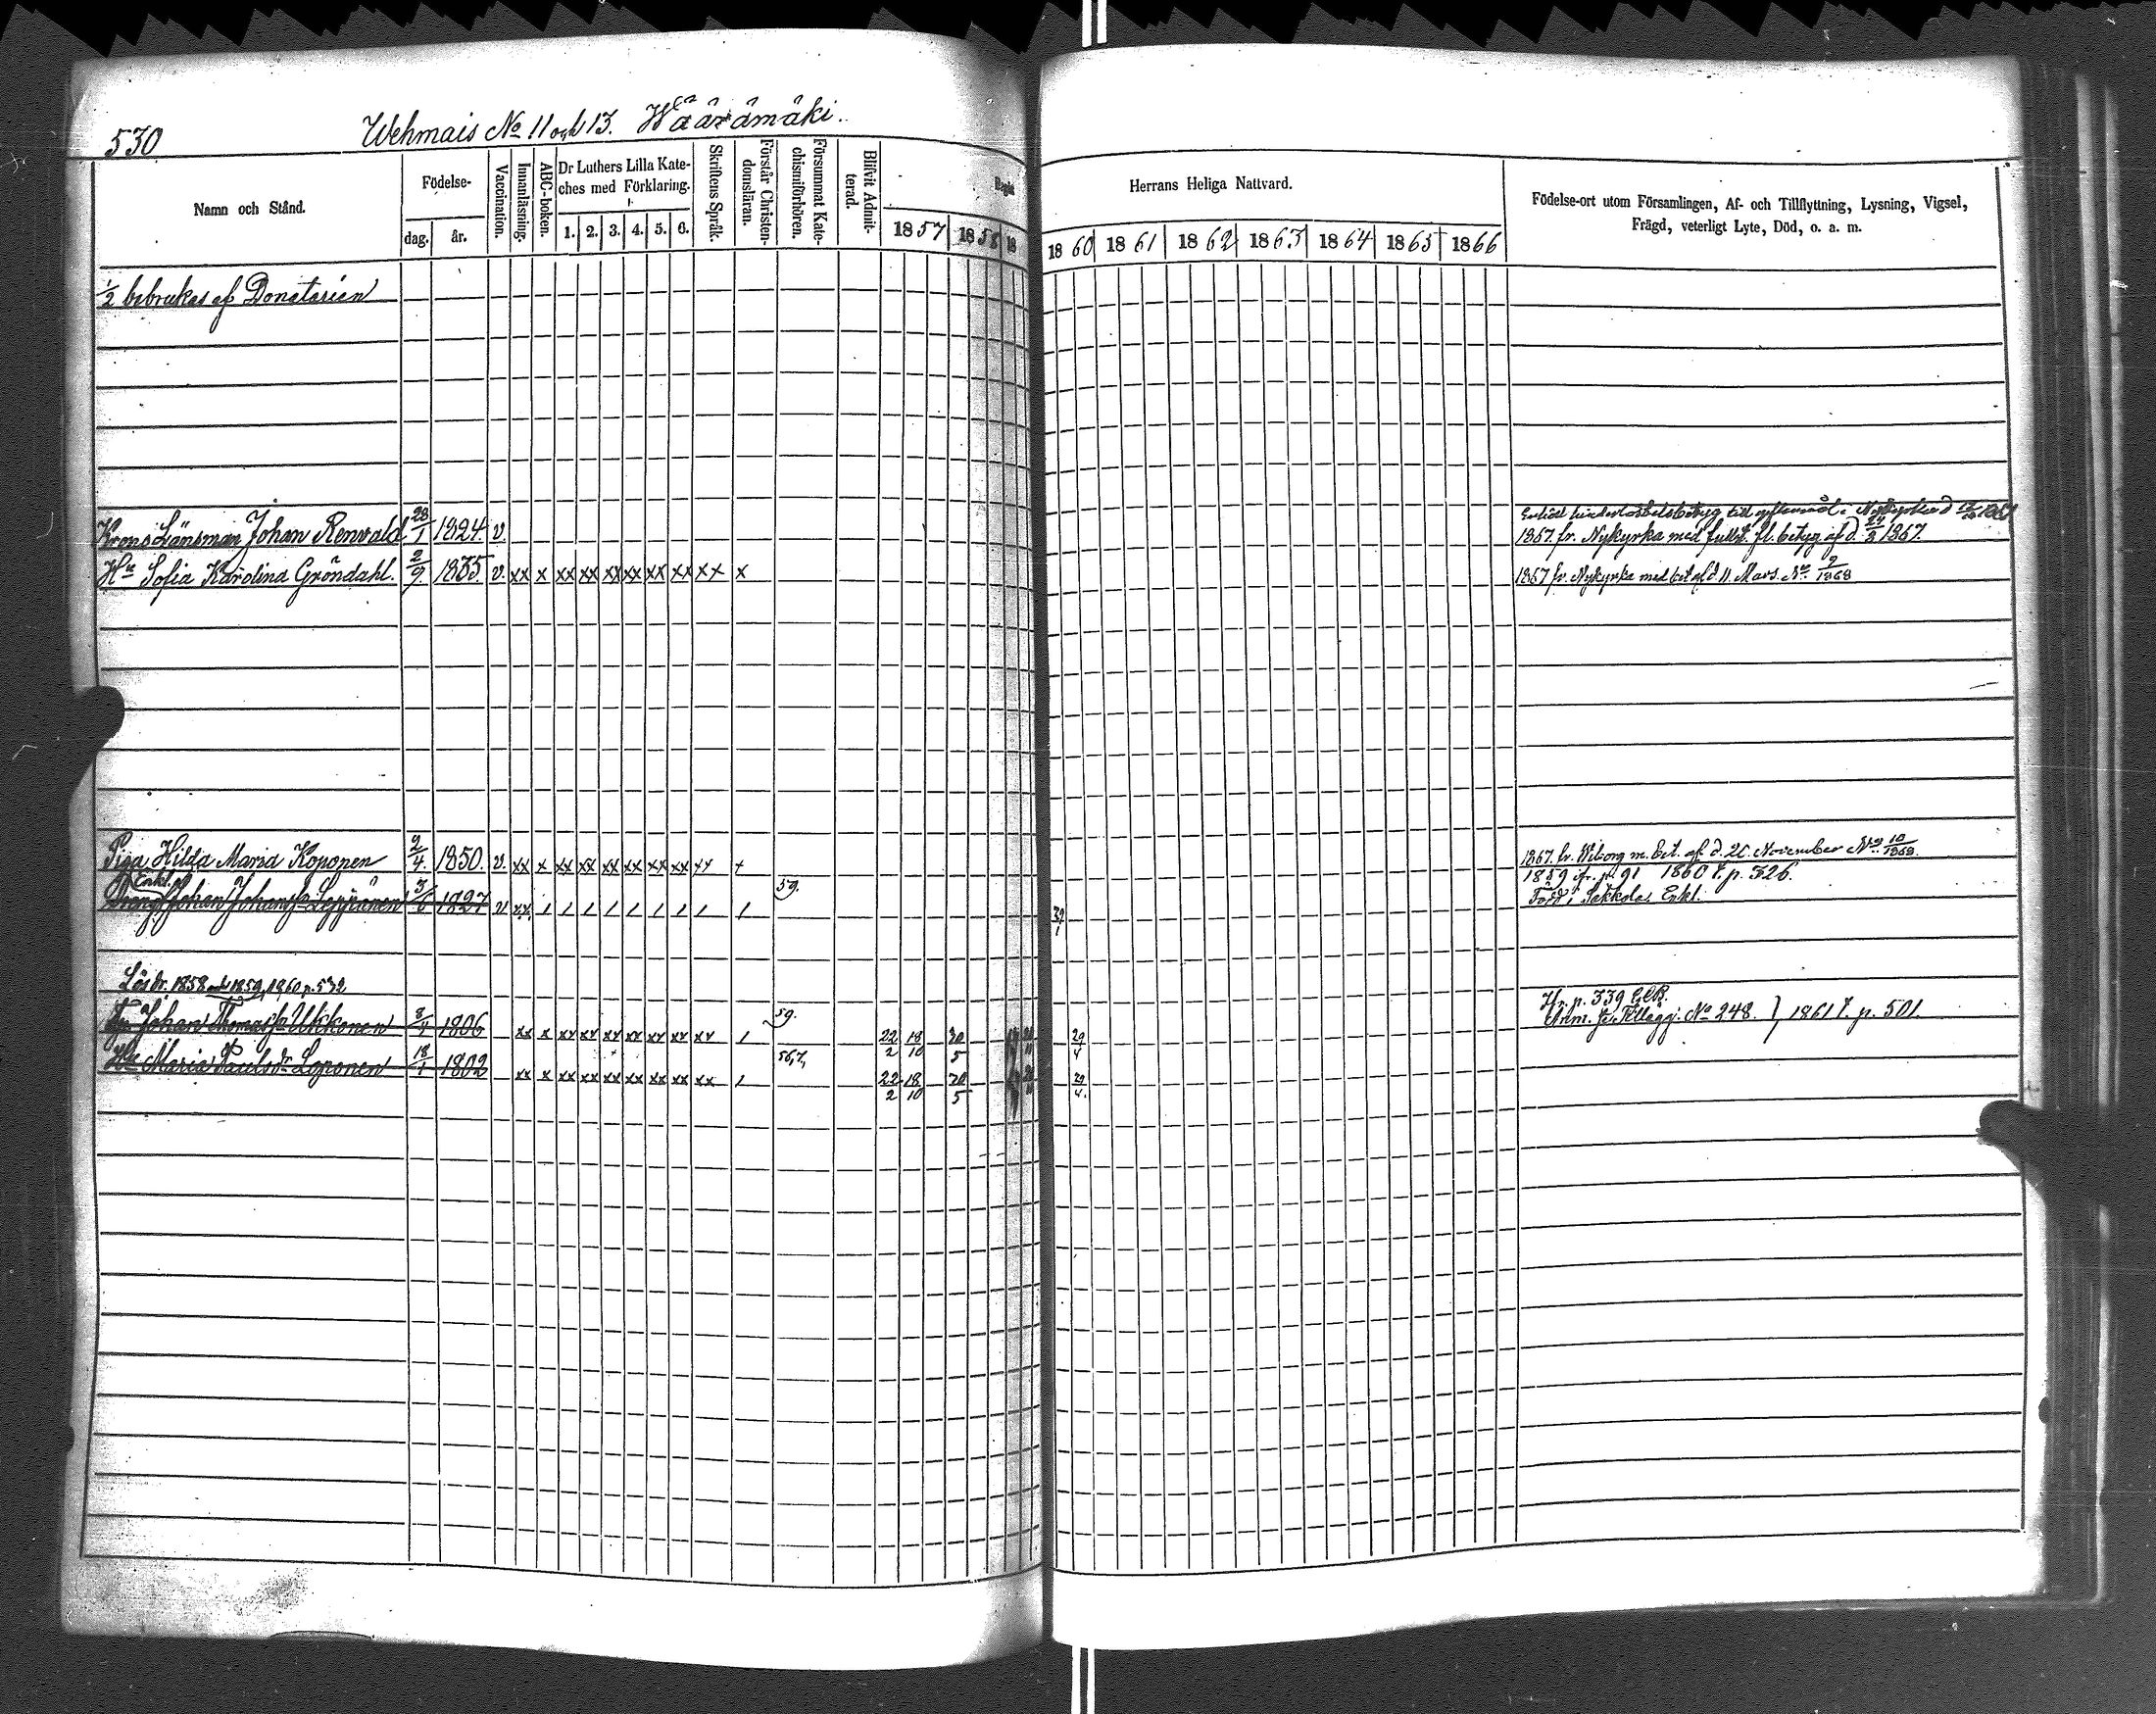 530
Wehmais No 11 och 13. Wäärämäki.
Namn och Stånd.
Födelse-
dag.
år.
Vaccination.
Innanläsning.
ABC-boken.
Dr Luthers Lilla Kate-
ches med Förklaring.
1. 2. 3. 4. 5. 6.
Skriftens Språk.
Förstår Christen-
domsläran.
Försummat Kate-
chismiförhören.
Blifvit Admit-
terad.
1857 1858 18
Herrans Heliga Nattvard.
1860 1861 1862 1863 1864 1865 1866
Födelse-ort utom Församlingen, Af- och Tillflyttning, Lysning, Vigsel,
Frägd, veterligt Lyte, Död, o. a. m.
1/2 brukas af Donatarien
Krono Länsman Johan Renvald 28/1 1824. v.
1867. fr. Nykyrka med fullst. fl. betyg af d. 1867.
Hu Sofia Karolina Gröndahl. 2/9 1835. v. xx x xx xx xx xx xx xx xx x
1867 fr. Nykyrka med bet. af d. 11. Mars. No 9/1868
Piga Hilda Maria Koponen 9/4. 1850. v. xx x xx xx xx xx xx xx xx +
1867. fr. Wiborg m. bet. af d. November No 10/1868.
Enkl. 59. 1859 fr. p. 91 1860 t. p. 326.
Dreng Johan Johansson Lepponen 3/6 1827 v xx / / / / / / / / /
Född i Sakkola. Enkl.
Lösdr. 1858 och 1859, 1860 p. 532
Johan Thomass. Ukkonen 3/4 1806 xx x xx xx xx xx xx xx xx / 59. 22/2 18/10 20/5 29/4
Fr. p. 339
No 248. } 1861 t. p. 501.
Hu Maria Paulsdr Loponen 18/1 1802 xx x xx xx xx xx xx xx xx / 56,7, 22/2 18/10 20/5 29/4.